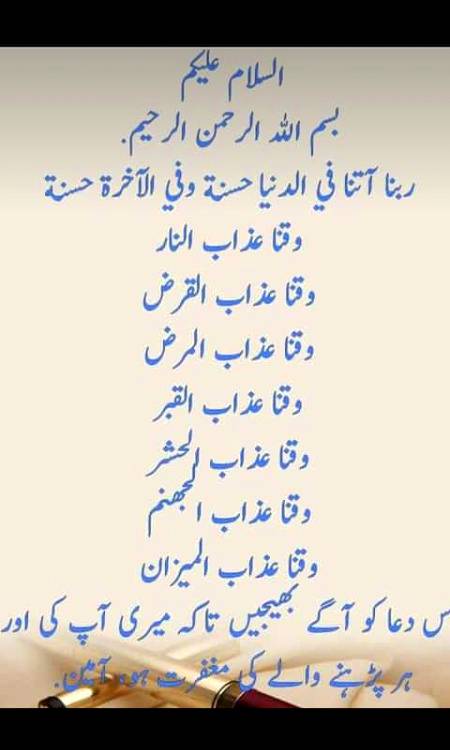 السلام علیکم
بسم اللہ الرحمن الرحیم.
ربنا آتنا في الدنیا حسنة وفي الآخرة حسنة
وقنا عذاب النار
وقنا عذاب القرض
وقنا عذاب المرض
وقنا عذاب القبر
وقنا عذاب الحشر
وقنا عذاب الجھنم
وقنا عذاب المیزان
س دعا کو آگے بھیجیں تاکہ میری آپ کی اور
ہر پڑہنے والے کی مغفرت ہو، آمین.